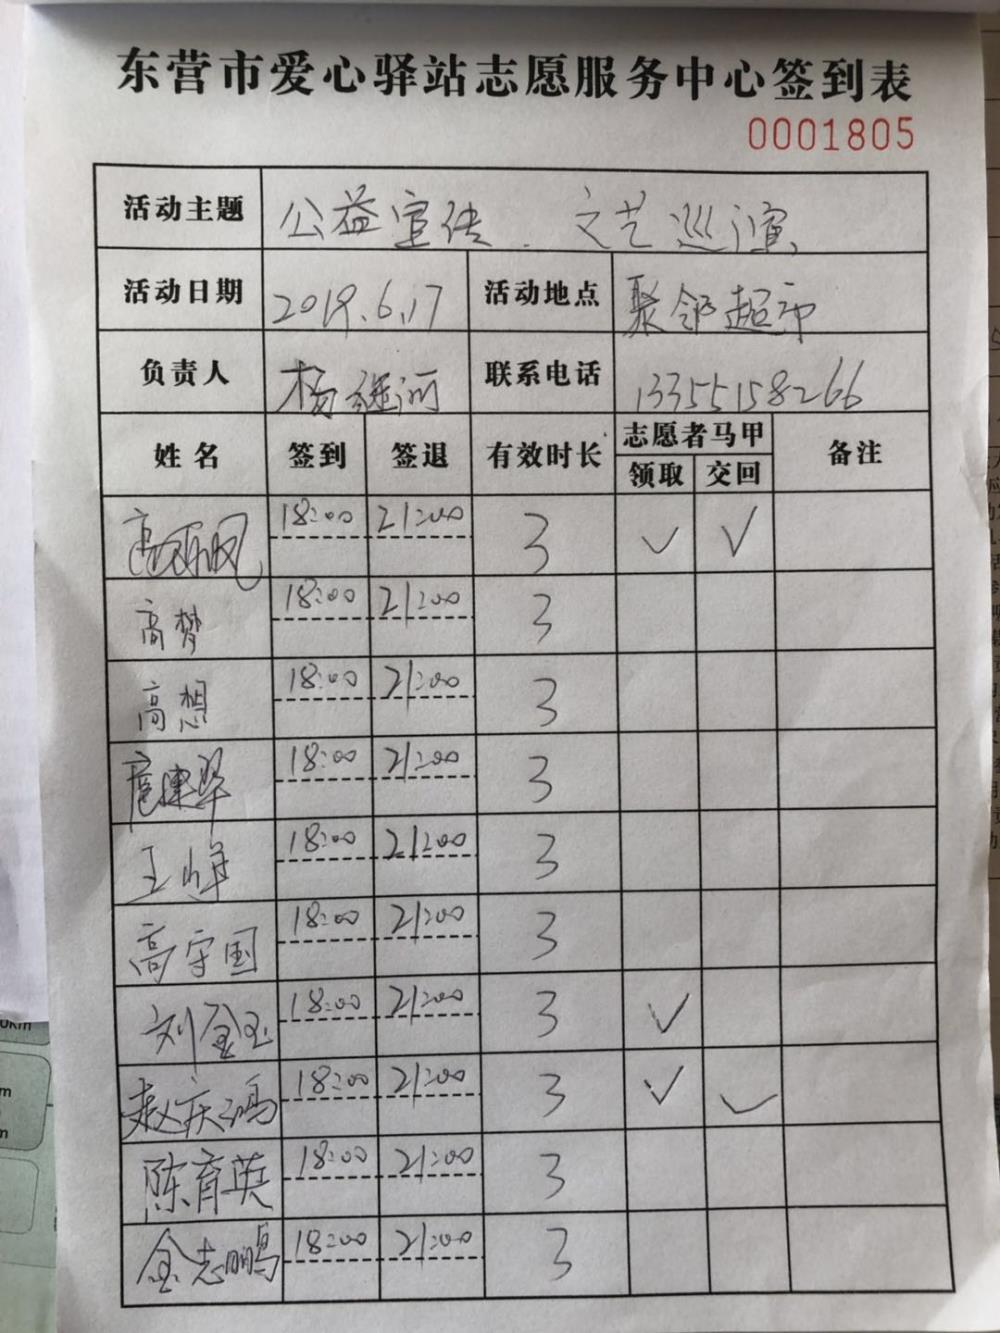 东营市爱心驿站志愿服务中心签到表
0001805
活动主题 公益宣传、文艺巡演
活动日期 2019.6.17 活动地点 聚邻超市
负责人 杨继河 联系电话 13355158266
姓名 签到 签退 有效时长 志愿者马甲 备注
领取 交回
18:00 21:00 3 ✓ ✓
高梦 18:00 21:00 3
高想 18:00 21:00 3
18:00 21:00 3
王峰 18:00 21:00 3
高守国 18:00 21:00 3
刘金玉 18:00 21:00 3 ✓
赵庆鸿 18:00 21:00 3 ✓ ✓
陈育英 18:00 21:00 3
金志鹏 18:00 21:00 3